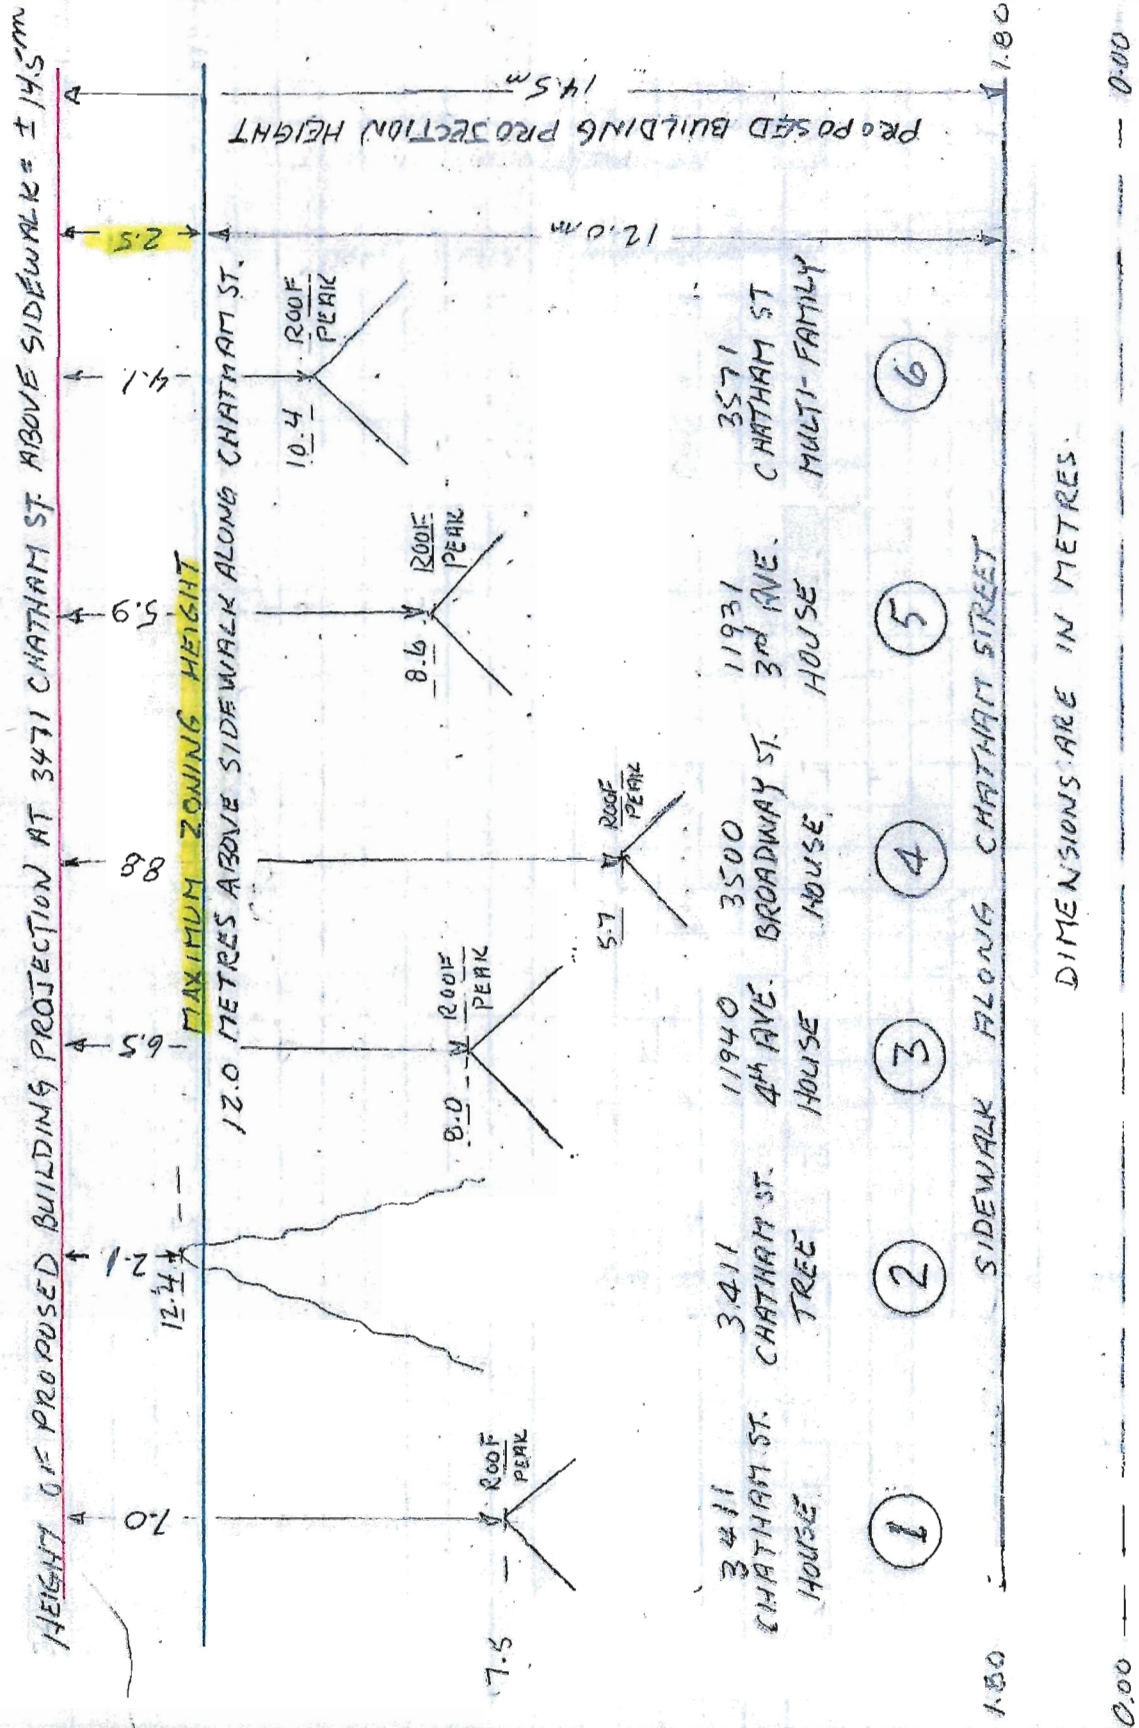 HEIGHT OF PROPOSED BUILDING PROJECTION AT 3471 CHATHAM ST. ABOVE SIDEWALK = ± 14.5m
7.0
2.1
6.5
8.8
5.9
4.1
2.5
12.4
MAXIMUM ZONING HEIGHT
12.0 METRES ABOVE SIDEWALK ALONG CHATHAM ST.
7.5
ROOF
PEAK
8.0
ROOF
PEAK
5.7
ROOF
PEAK
8.6
ROOF
PEAK
10.4
ROOF
PEAK
12.0 m
PROPOSED BUILDING PROJECTION HEIGHT
14.5 m
3411
CHATHAM ST.
HOUSE
1
3411
CHATHAM ST.
TREE
2
11940
4th AVE.
HOUSE
3
3500
BROADWAY ST.
HOUSE
4
11931
3rd AVE.
HOUSE
5
3571
CHATHAM ST
MULTI-FAMILY
6
1.80
SIDEWALK ALONG CHATHAM STREET
1.80
DIMENSIONS ARE IN METRES.
0.00
0.00